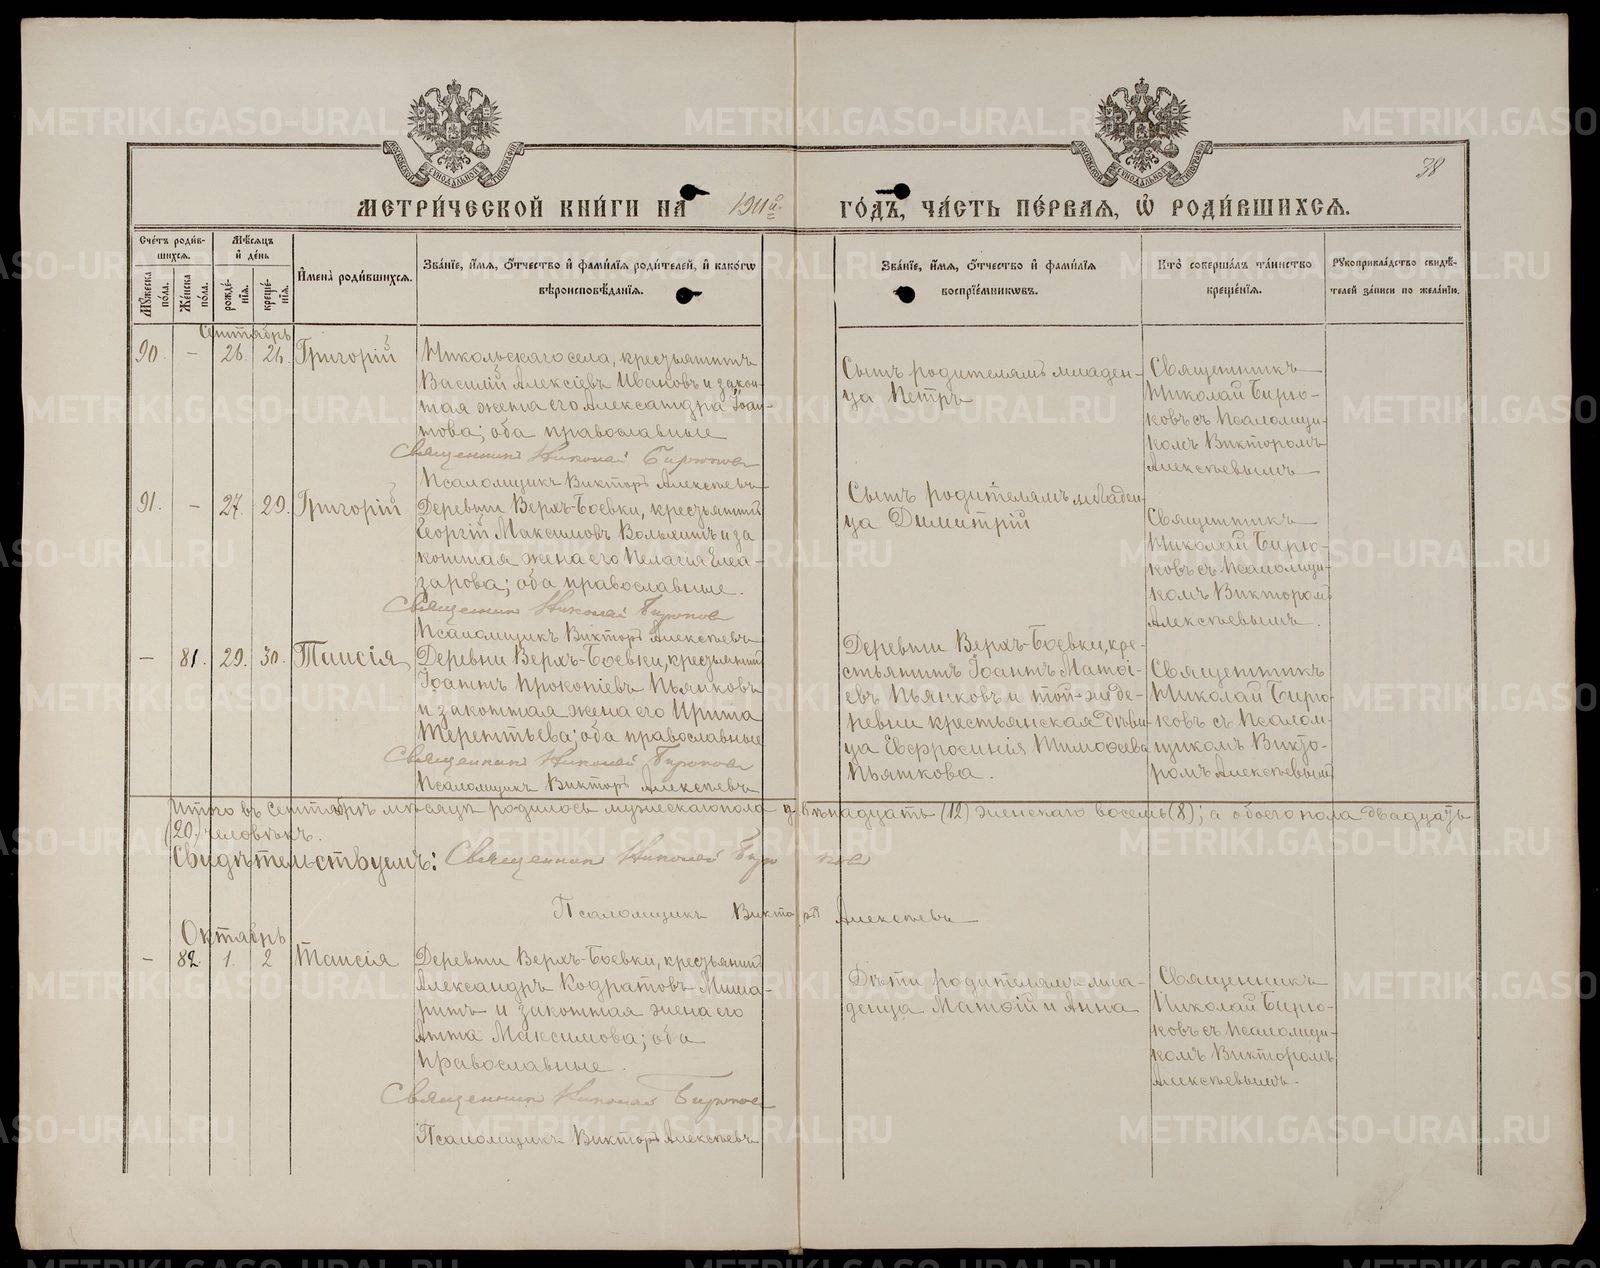 38
МЕТРИ́ЧЕСКОЙ КНИ́ГИ НА 1911й. ГО́ДЪ, ЧА́СТЬ ПЕ́РВАЯ, Ѡ҆ РОДИ́ВШИХСЯ.
Сче́тъ роди́в-
шихся.
Мꙋ́жеска по́ла.
Же́нска по́ла.
Мѣ́сяцъ
и҆ де́нь
рожде́-
нїя.
креще́-
нїя.
И҆мена̀ роди́вшихся.
Зва́нїе, и҆́мя, ѻ҆́тчество и҆ фами́лїя роди́телей, и҆ како́гѡ
вѣроисповѣ́данїя.
Зва́нїе, и҆́мя, ѻ҆́тчество и҆ фами́лїя
воспрїе́мникѡвъ.
Кто̀ соверша́лъ та́инство
креще́нїя.
Рꙋкоприкла́дство свидѣ́-
телей за́писи по жела́нїю.
Сентябрь
90. – 26. 26. Григорій
Никольскаго села, крестьянинъ
Василій Алексіевъ Ивановъ и закон-
ная жена его Александра Іоан-
нова; оба православные
Священникъ Николай Бирюковъ
Псаломщикъ Викторъ Алексѣевъ
Сынъ родителямъ младен-
ца Петръ
Священникъ
Николай Бирю-
ковъ съ Псаломщи-
комъ Викторомъ
Алексѣевымъ
91. – 27. 29. Григорій
Деревни Верхъ-Боевки, крестьянинъ
Георгій Максимовъ Волынинъ и за
конная жена его Пелагія Елеа-
зарова; оба православные.
Священникъ Николай Бирюковъ
Псаломщикъ Викторъ Алексѣевъ
Сынъ родителямъ младен-
ца Димитрій
Священникъ
Николай Бирю-
ковъ съ Псаломщи-
комъ Викторомъ
Алексѣевымъ.
– 81. 29. 30. Таисія
Деревни Верхъ-Боевки, крестьянинъ
Іоаннъ Прокопіевъ Пьянковъ
и законная жена его Ирина
Терентьева; оба православные
Священникъ Николай Бирюковъ
Псаломщикъ Викторъ Алексѣевъ
Деревни Верхъ-Боевки, кре-
стьянинъ Іоаннъ Матѳі-
евъ Пьянковъ и той-же де-
ревни крестьянская дѣви
ца Евфросинія Тимоѳеева
Пьянкова.
Священникъ
Николай Бирю-
ковъ съ Псалом-
щикомъ Викто-
ромъ Алексѣевымъ
Итого въ Сентябрѣ мѣсяцѣ родилось мужескаго пола двѣнадцать (12) женскаго восемь (8); а обоего пола двадцать
(20) человѣкъ.
Свидѣтельствуемъ: Священникъ Николай Бирюковъ
Псаломщикъ Викторъ Алексѣевъ
Октябрь
– 82. 1. 2 Таисія
Деревни Верхъ-Боевки, крестьянинъ
Александръ Кодратовъ Миша-
ринъ и законная жена его
Анна Максимова; оба
православные.
Священникъ Николай Бирюковъ
Псаломщикъ Викторъ Алексѣевъ
Дѣти родителямъ мла-
денца Матѳій и Анна
Священникъ
Николай Бирю-
ковъ съ Псаломщи-
комъ Викторомъ
Алексѣевымъ.
METRIKI.GASO-URAL.RU